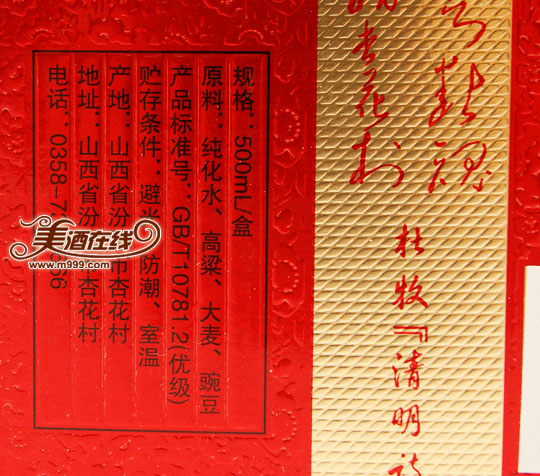 规格：500mL/盒
原料：纯化水、高粱、大麦、豌豆
产品标准号：GB/T10781.2(优级)
贮存条件：避光 防潮、室温
产地：山西省汾 市杏花村
地址：山西省汾 杏花村
电话：0358-7 66
杏花村
杜牧『清明
美酒在线
www.m999.com